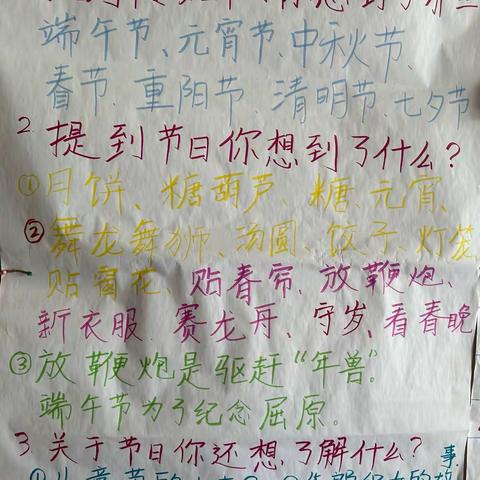 端午节、元宵节、中秋节、
春节、重阳节、清明节、七夕节
2 提到节日你想到了什么？
①月饼、糖葫芦、糖、元宵、
②舞龙舞狮、汤圆、饺子、灯笼
贴窗花、贴春帘、放鞭炮、
新衣服、赛龙舟、守岁、看春晚
③放鞭炮是驱赶“年兽”。
端午节为了纪念屈原。
3 关于节日你还想了解什么？
事